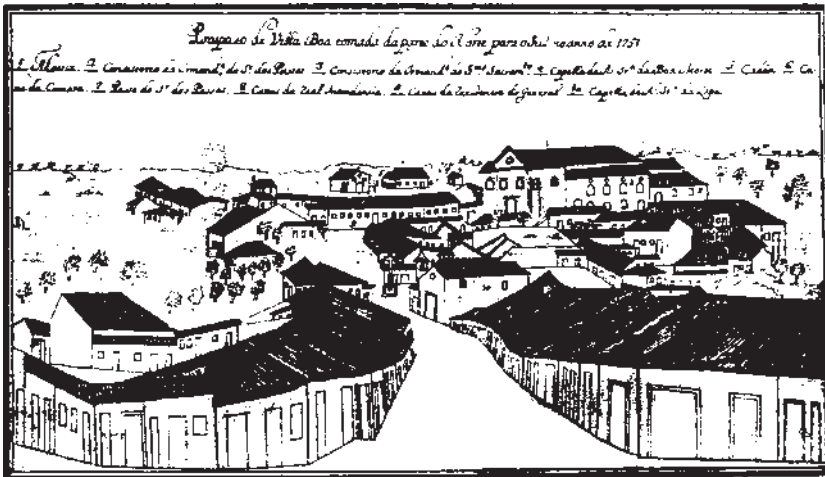 Prospeto de Villa Boa tomada da parte do Norte para o Sul no anno de 1751
1 Matris. 2 Consistorio da Irmand.e do S.r dos Passos 3 Consistorio da Irmand.e do S.mo Sacram.to 4 Capella de N. Sr.a da Boa Morte 5 Cadea. 6 Ca-
sa da Camera. 7 Passo do S.r dos Passos. 8 Casas da Real Intendencia. 9 Casas da Rezidencia do General 10 Capella de N. Sr.a da Lapa